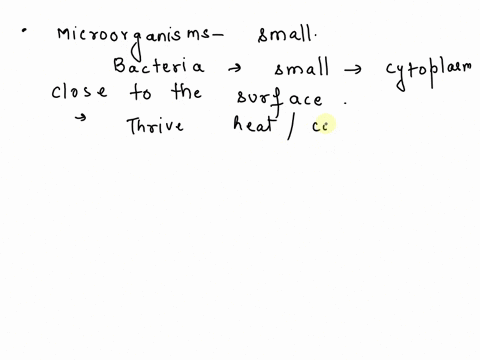 • Microorganisms– small.
Bacteria → small → cytoplasm
close to the surface.
→ Thrive heat / co